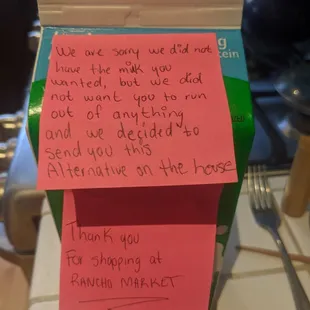 We are sorry we did not
have the milk you
wanted, but we did
not want you to run
out of anything
and we decided to
send you this
Alternative on the house
Thank you
For shopping at
RANCHO MARKET